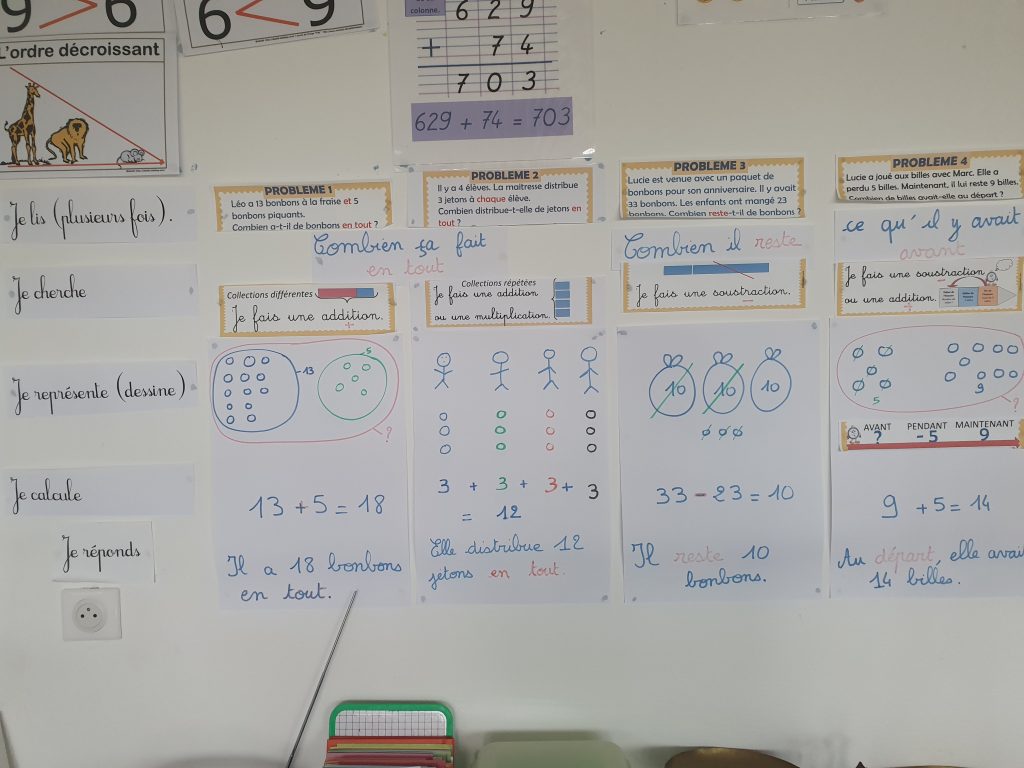 9 > 6
6 < 9
L'ordre décroissant
colonne.
6 2 9
+ 7 4
7 0 3
629 + 74 = 703
Je lis (plusieurs fois).
Je cherche
Je représente (dessine)
Je calcule
Je réponds
PROBLEME 1
Léo a 13 bonbons à la fraise et 5
bonbons piquants.
Combien a-t-il de bonbons en tout ?
PROBLEME 2
Il y a 4 élèves. La maitresse distribue
3 jetons à chaque élève.
Combien distribue-t-elle de jetons en
tout ?
Combien ça fait
en tout
Collections différentes
Je fais une addition.
+
Collections répétées
Je fais une addition
ou une multiplication.
13
5
?
13 + 5 = 18
Il a 18 bonbons
en tout.
3 + 3 + 3 + 3
= 12
Elle distribue 12
jetons en tout.
PROBLEME 3
Lucie est venue avec un paquet de
bonbons pour son anniversaire. Il y avait
33 bonbons. Les enfants ont mangé 23
bonbons. Combien reste-t-il de bonbons ?
Combien il reste
Je fais une soustraction.
10 10 10
33 - 23 = 10
Il reste 10
bonbons.
PROBLEME 4
Lucie a joué aux billes avec Marc. Elle a
perdu 5 billes. Maintenant, il lui reste 9 billes.
Combien de billes avait-elle au départ ?
ce qu'il y avait
avant
Je fais une soustraction
ou une addition.
+
5
9
?
AVANT PENDANT MAINTENANT
? - 5 9
9 + 5 = 14
Au départ, elle avait
14 billes.